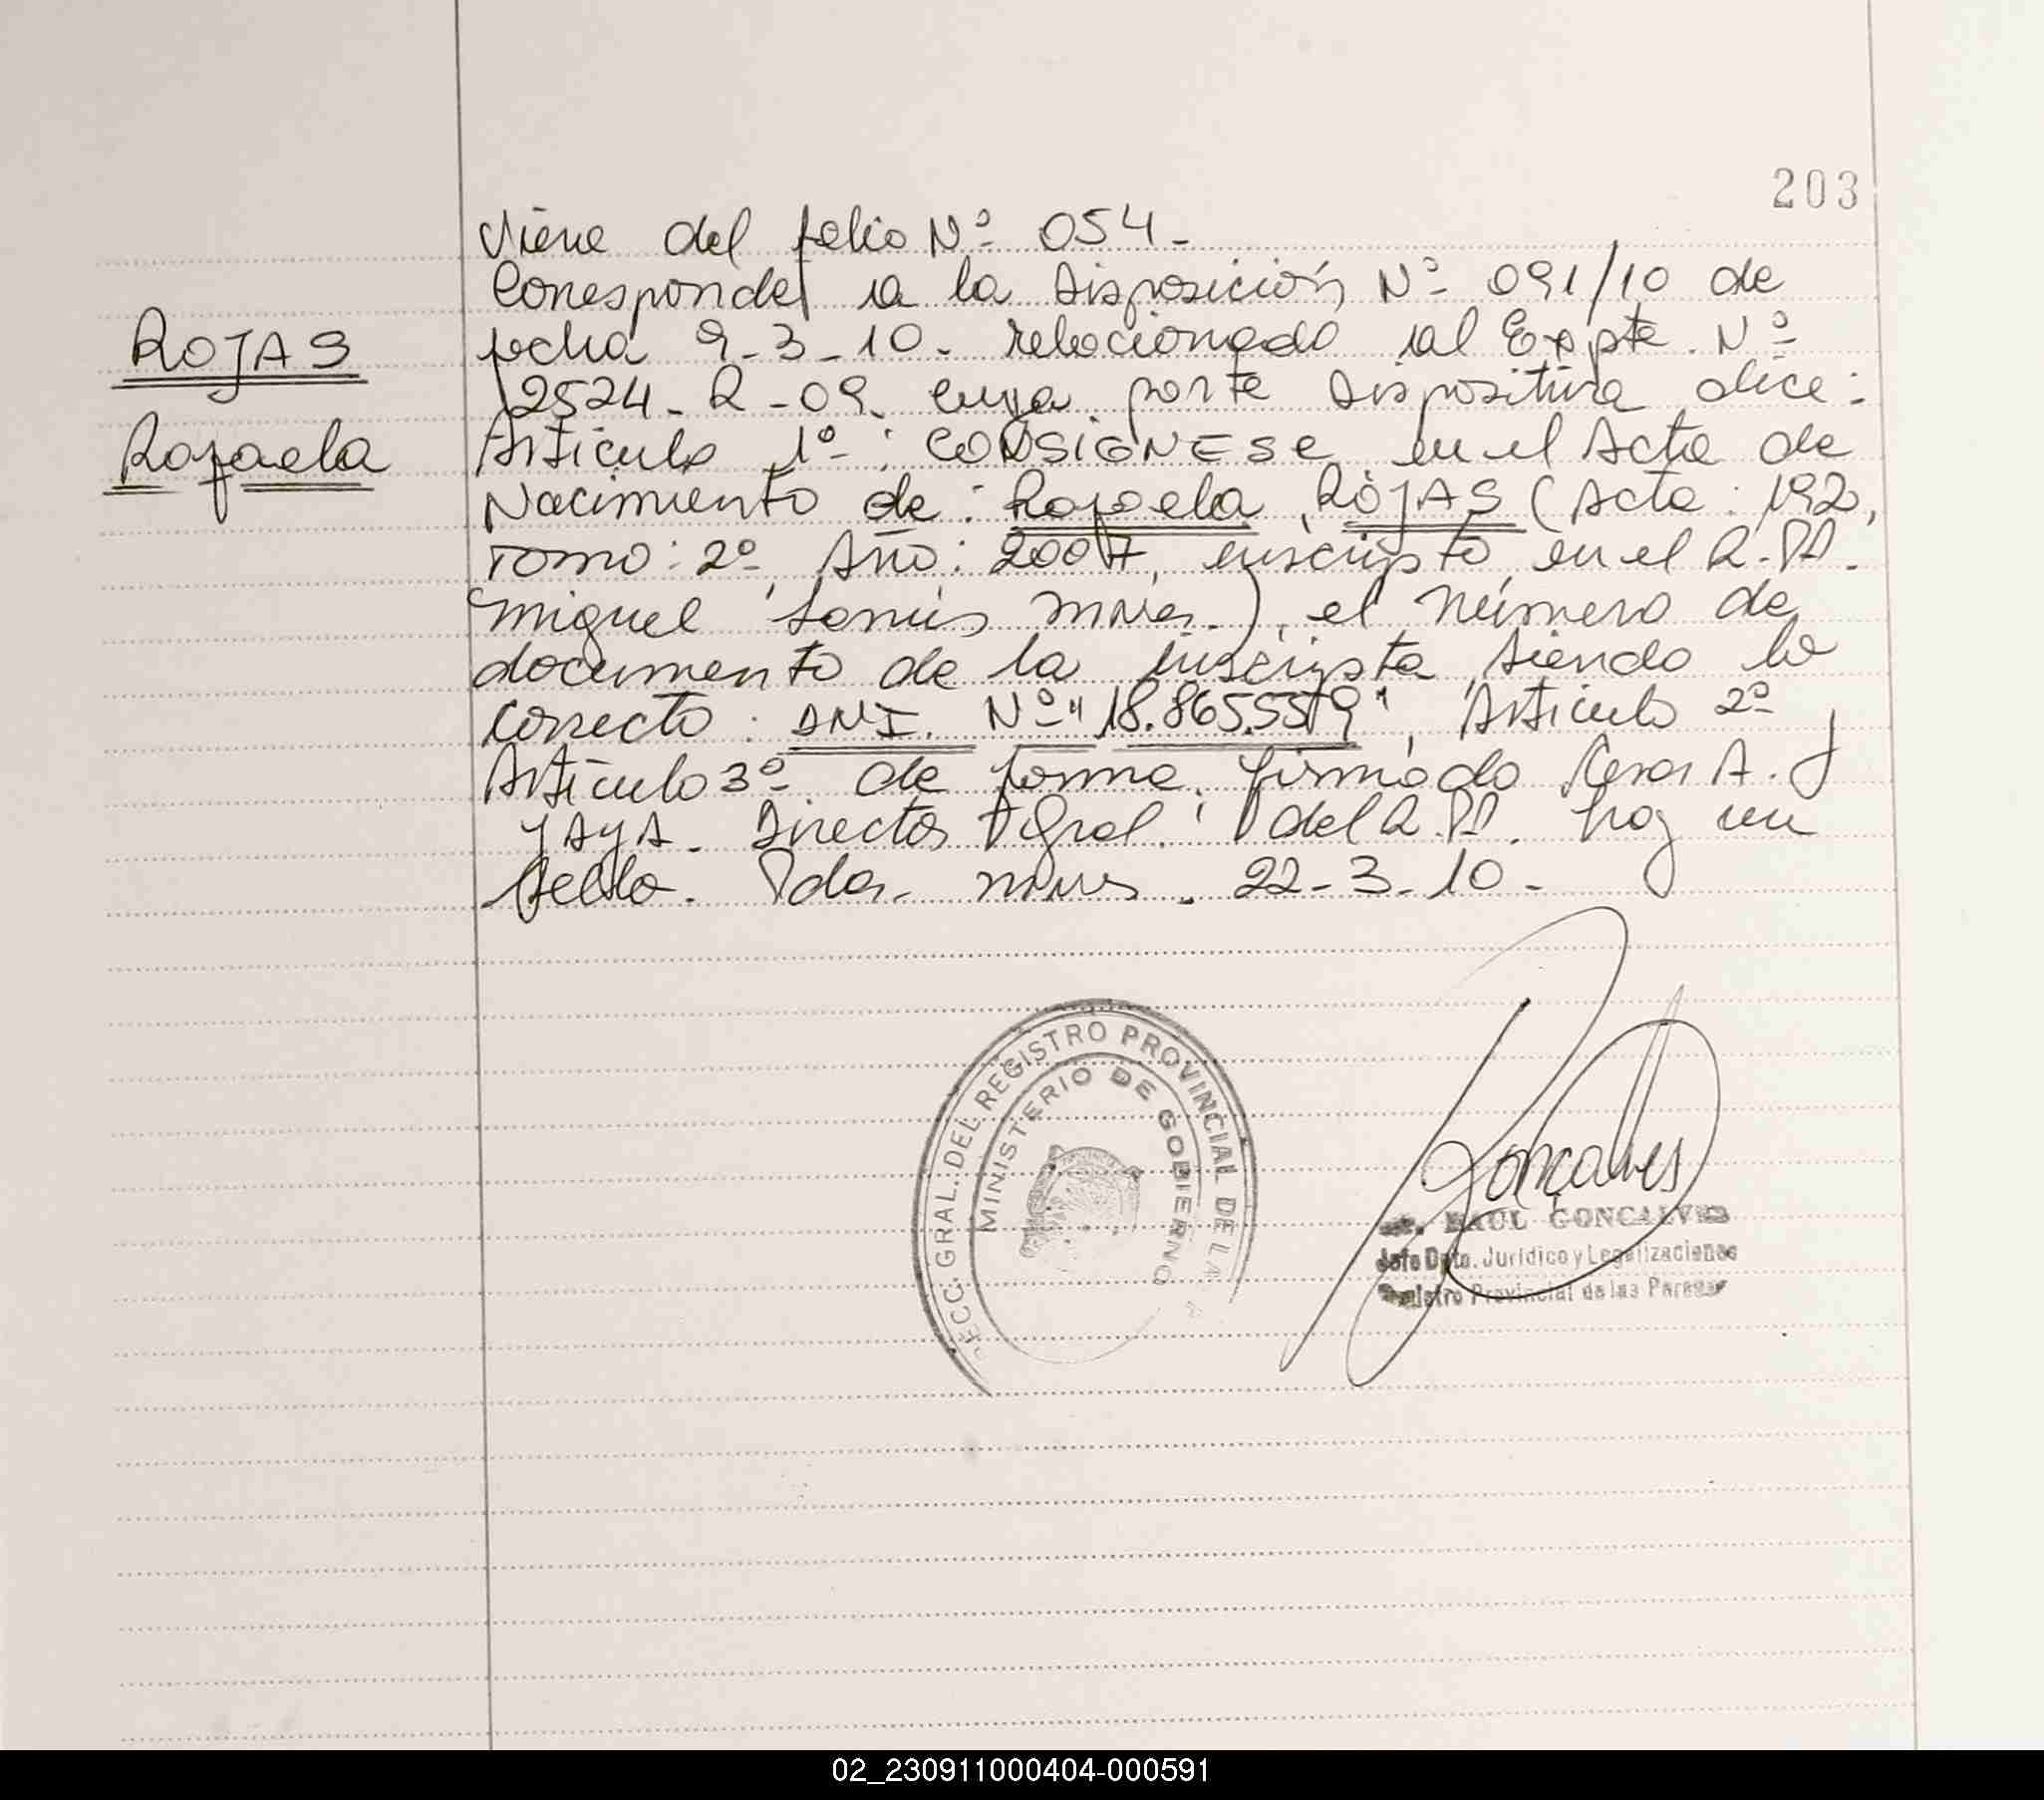 203
Viene del folio Nº 054.-
Corresponde a la Disposición Nº 091/10 de
ROJAS
fecha 9-3-10. relacionado al Expte. Nº
2524-R-09. cuya parte dispositiva dice:
Rafaela
Artículo 1º: CONSIGNESE en el Acta de
Nacimiento de: Rafaela ROJAS (Acta: 192,
Tomo: 2º, Año: 2007, inscripto en el R.PP.
Miguel Lanús Mnes.), el número de
documento de la inscripta siendo lo
correcto: DNI. Nº "18.865.559", Artículo 2º y
Artículo 3º de forma. firmado Cesar A.
JAYA. Director Gral. del R.PP. hay un
sello. Pdas. Mnes. 22-3-10.-
ECC. GRAL. DEL REGISTRO PROVINCIAL DE LA
MINISTERIO DE GOBIERNO
Goncalves
RAUL GONCALVES
Jefe Dpto. Jurídico y Legalizaciones
Registro Provincial de las Personas
02_230911000404-000591